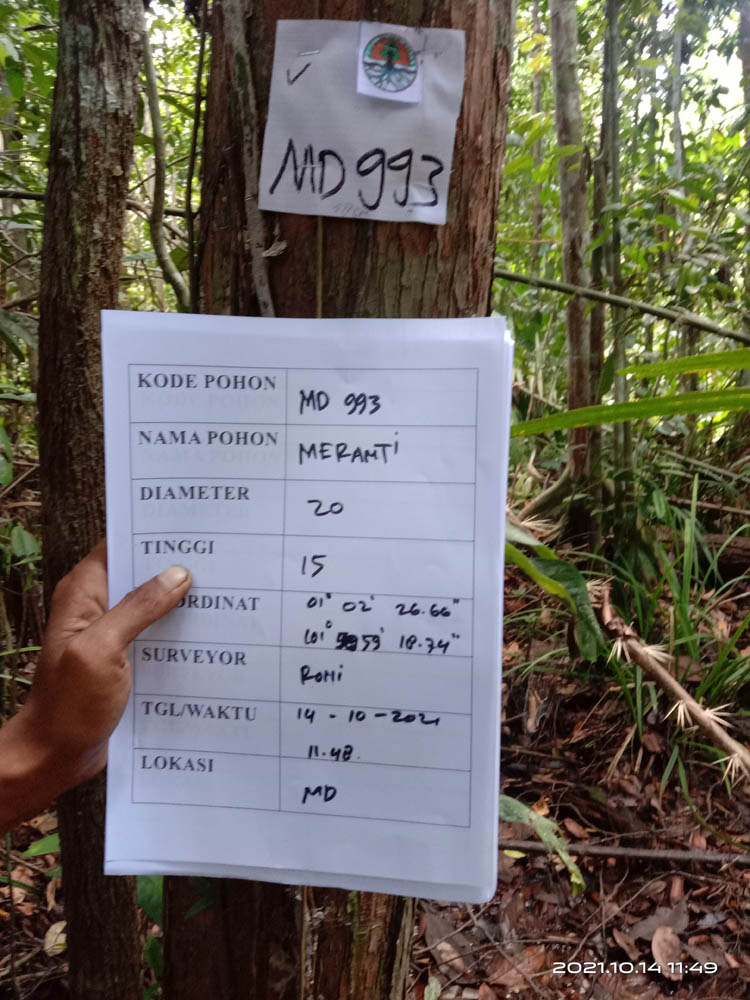 MD 993
KODE POHON MD 993
NAMA POHON MERAMTI
DIAMETER 20
TINGGI 15
ORDINAT 01° 02' 26.66"
101° 59' 18.74"
SURVEYOR ROMI
TGL/WAKTU 14 - 10 - 2021
11.48.
LOKASI MD
2021.10.14 11:49